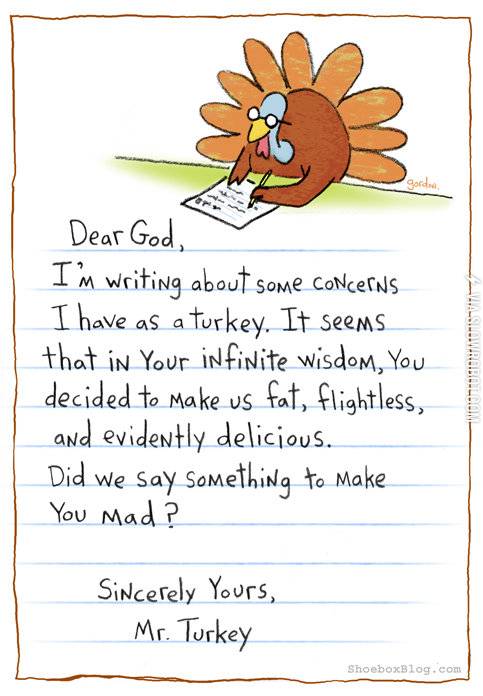 gordon.
Dear God,
I'm writing about some concerns
I have as a turkey. It seems
that in Your infinite wisdom, You
decided to make us fat, flightless,
and evidently delicious.
Did we say something to make
You mad?
Sincerely Yours,
Mr. Turkey
ShoeboxBlog.com
VIA SLOWROBOT.COM